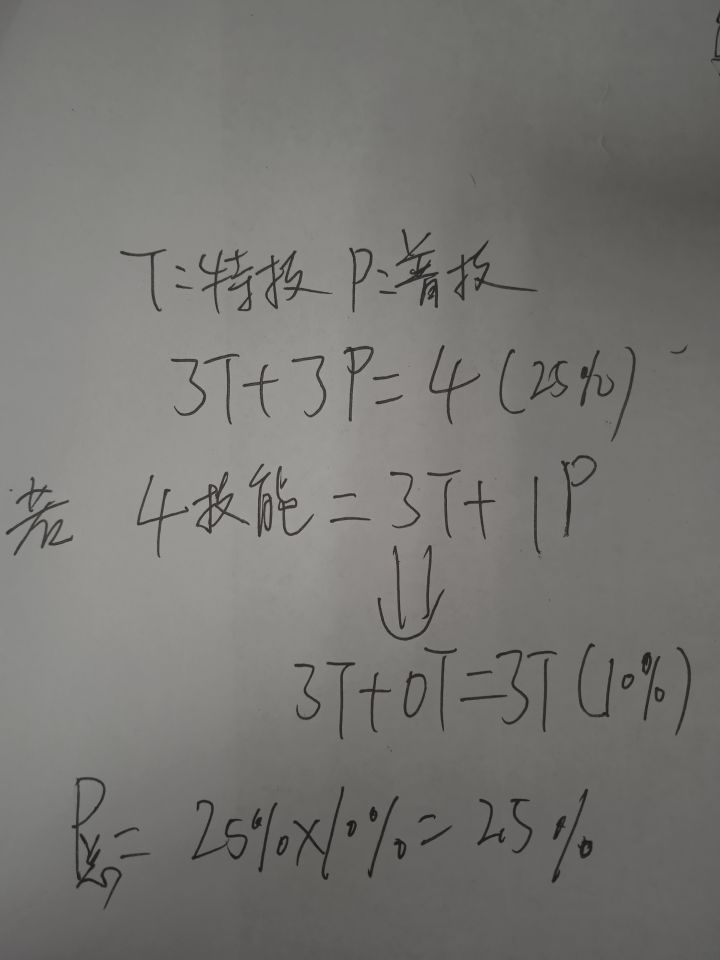 T=特技 P=普技
3T+3P=4(25%)
若 4技能=3T+1P
⇓
3T+0T=3T(10%)
P总=25%×10%=2.5%